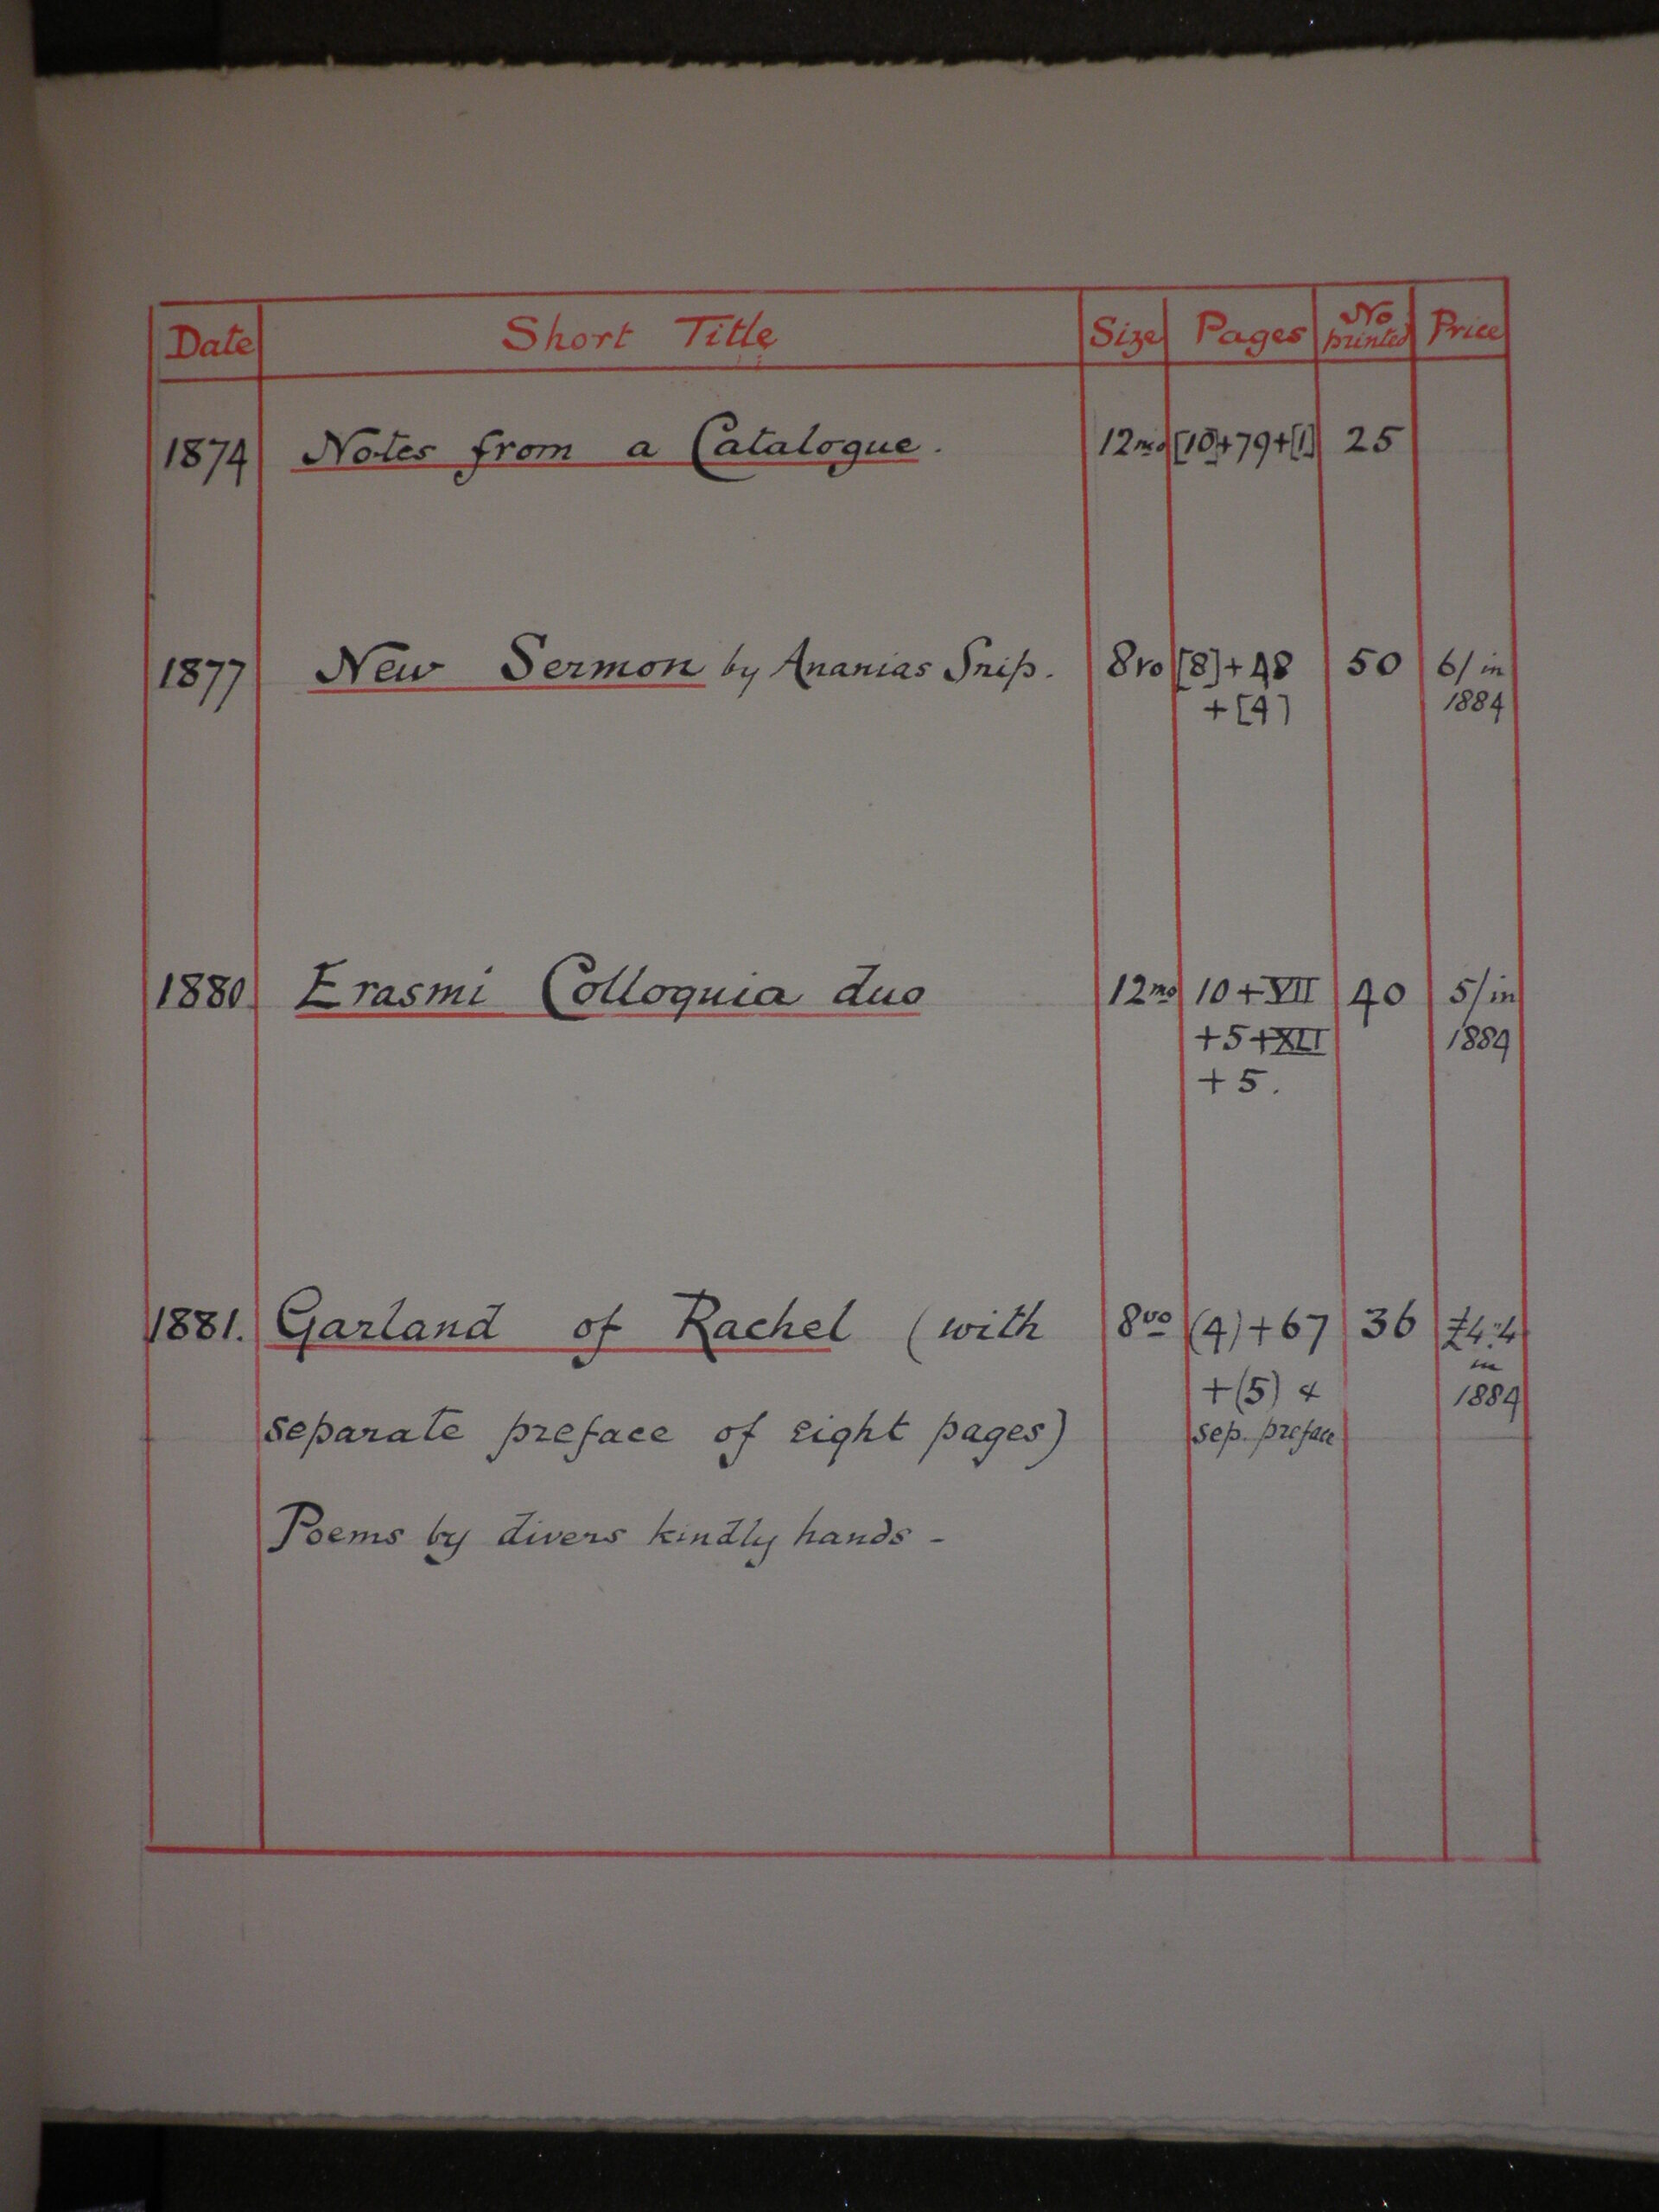 Date Short Title Size Pages No printed Price
1874 Notes from a Catalogue. 12mo [10]+79+[1] 25
1877 New Sermon by Ananias Snip. 8vo [8]+48 50 6/ in
+[4] 1884
1880 Erasmi Colloquia duo 12mo 10+VII 40 5/ in
+5+XLI 1884
+5.
1881. Garland of Rachel (with 8vo (4)+67 36 £4.4
in
+(5) & 1884
separate preface of eight pages) sep. preface
Poems by divers kindly hands -